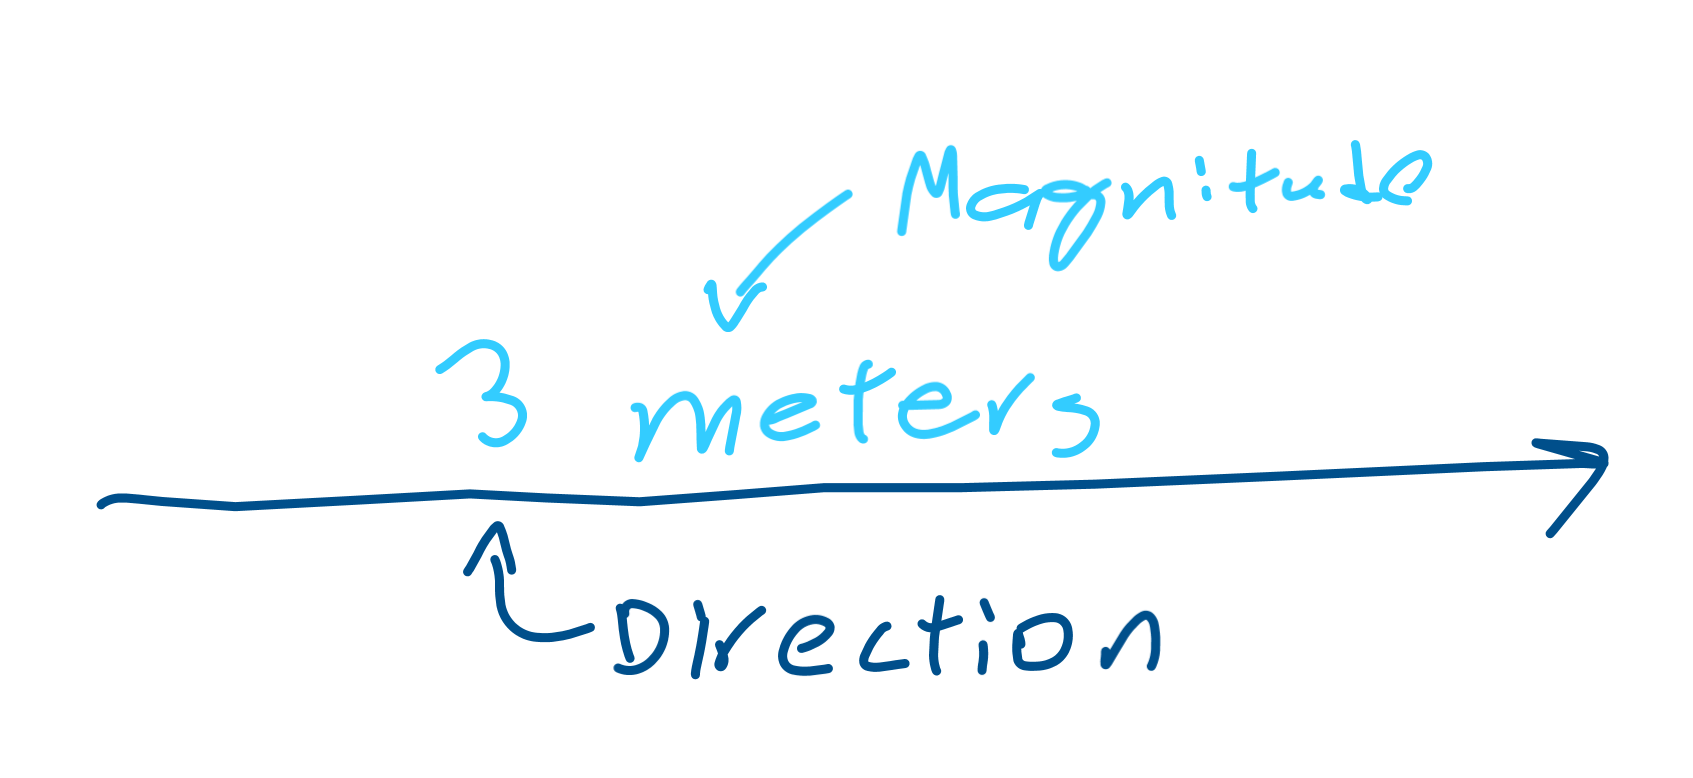 Magnitude
3 meters
Direction